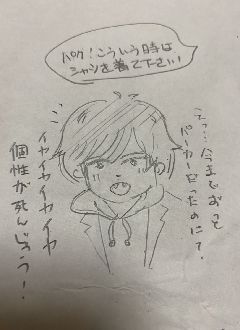 パク！こういう時は
シャツを着て下さい！
えっ…今までずっと
パーカーだったのにて、
イヤイヤイヤイヤ
個性が死んじゃう！